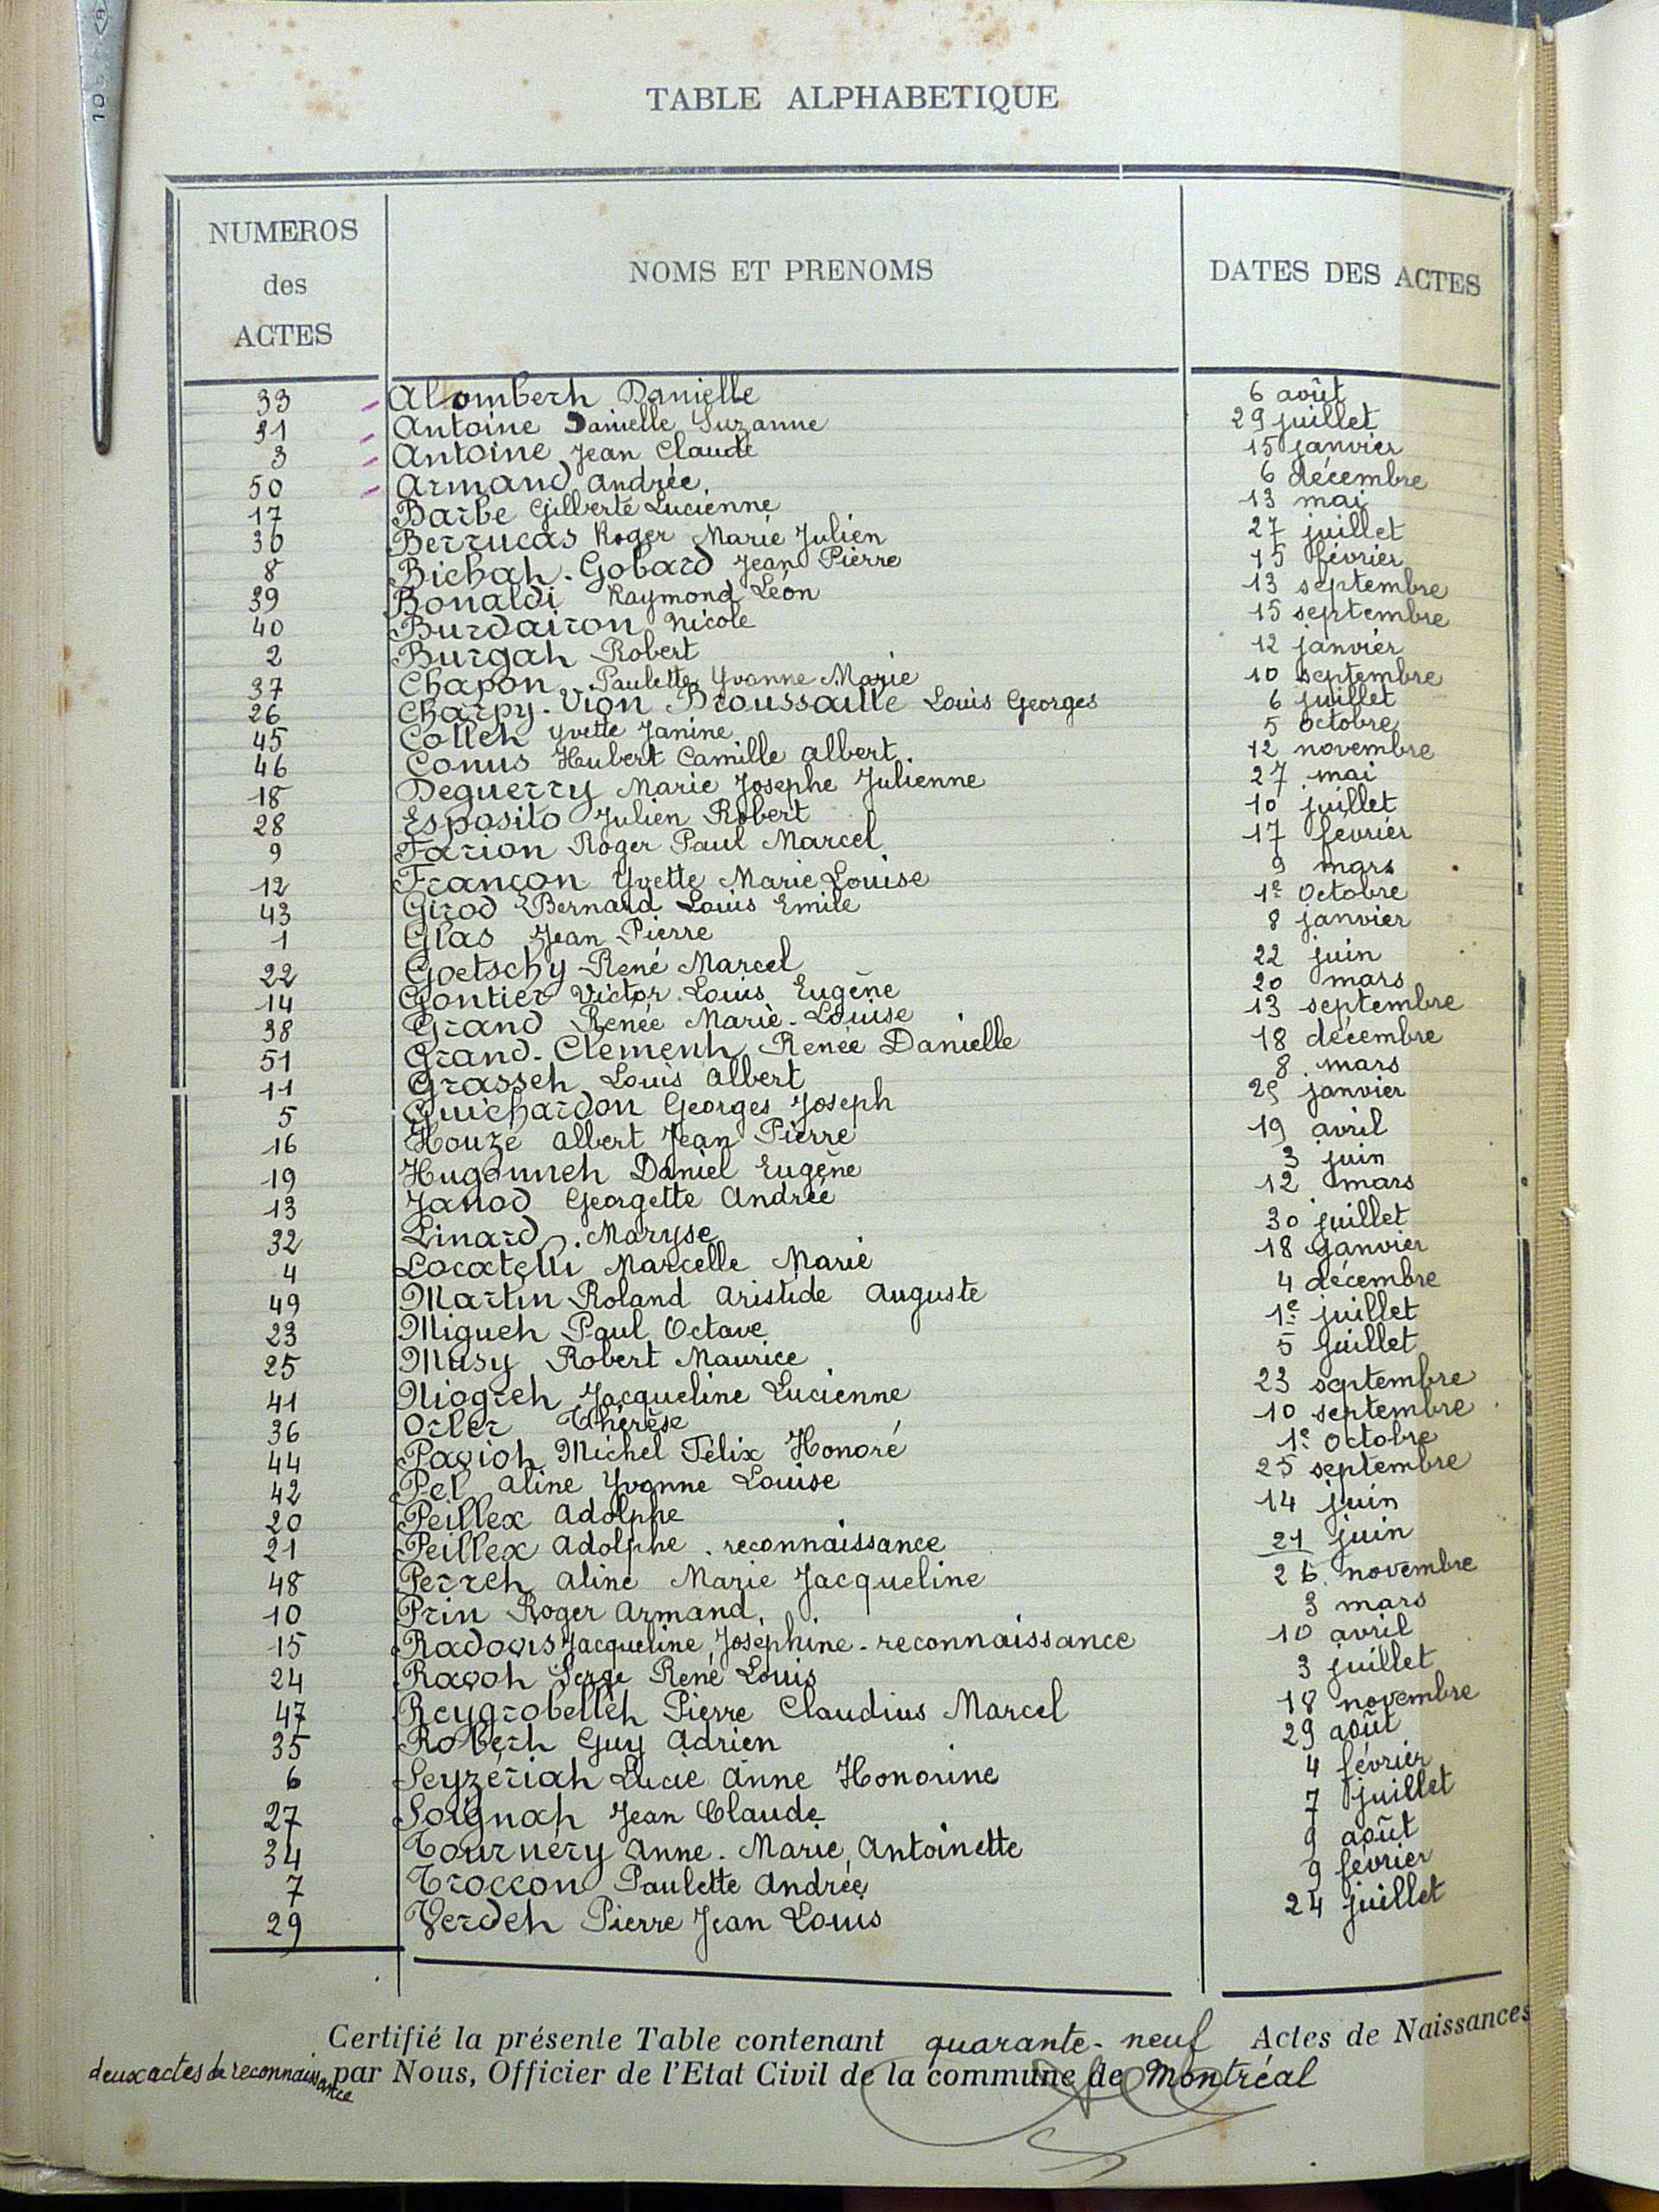 TABLE ALPHABETIQUE
NUMEROS des ACTES NOMS ET PRENOMS DATES DES ACTES
33 Alombert Danielle 6 août
31 Antoine Danielle Suzanne 29 juillet
3 Antoine Jean Claude 15 janvier
50 Armand Andrée 6 décembre
17 Barbe Gilberte Lucienne 13 mai
30 Berrucas Roger Marie Julien 27 juillet
8 Bichat-Gobard Jean Pierre 15 février
39 Bonaldi Raymond Léon 13 septembre
40 Burdairon Nicole 15 septembre
2 Burgat Robert 12 janvier
37 Chapon Paulette Yvonne Marie 10 septembre
26 Charpy-Vion Broussaille Louis Georges 6 juillet
45 Collet Yvette Janine 5 octobre
46 Conus Hubert Camille Albert. 12 novembre
18 Deguerry Marie Josephe Julienne 27 mai
28 Esposito Julien Robert 10 juillet
9 Farion Roger Paul Marcel 17 février
12 Françon Yvette Marie Louise 9 mars
43 Girod Bernard Louis Emile 1e Octobre
1 Glas Jean Pierre 8 janvier
22 Goetschy René Marcel 22 juin
14 Gontier Victor Louis Eugène 20 mars
38 Grand Renée Marie-Louise 13 septembre
51 Grand-Clement Renée Danielle 18 décembre
11 Grasset Louis Albert 8 mars
5 Guichardon Georges Joseph 25 janvier
16 Houzé Albert Jean Pierre 19 avril
19 Hugonnet Daniel Eugène 3 juin
13 Janod Georgette Andrée 12 mars
32 Linard Maryse 30 juillet
4 Locatelli Marcelle Marie 18 Janvier
49 Martin Roland Aristide Auguste 4 décembre
23 Miguet Paul Octave 1e juillet
25 Musy Robert Maurice 5 juillet
41 Niogret Jacqueline Lucienne 23 septembre
36 Orler Thérèse 10 septembre
44 Paviot Michel Félix Honoré 1e Octobre
42 Pel Aline Yvonne Louise 25 septembre
20 Peillex Adolphe 14 juin
21 Peillex Adolphe. reconnaissance 21 juin
48 Perret Aline Marie Jacqueline 26 novembre
10 Prin Roger Armand. 3 mars
15 Radovis Jacqueline Joséphine-reconnaissance 10 avril
24 Ravot Serge René Louis 3 juillet
47 Reygrobellet Pierre Claudius Marcel 18 novembre
35 Robert Guy Adrien 29 août
6 Seyzériat Lucie Anne Honorine 4 février
27 Soignat Jean Claude 7 juillet
34 Tournery Anne-Marie Antoinette 9 août
7 Troccon Paulette Andrée 9 février
29 Verdet Pierre Jean Louis 24 juillet
Certifié la présente Table contenant quarante-neuf Actes de Naissances
deux actes de reconnaissance par Nous, Officier de l'Etat Civil de la commune de Montréal